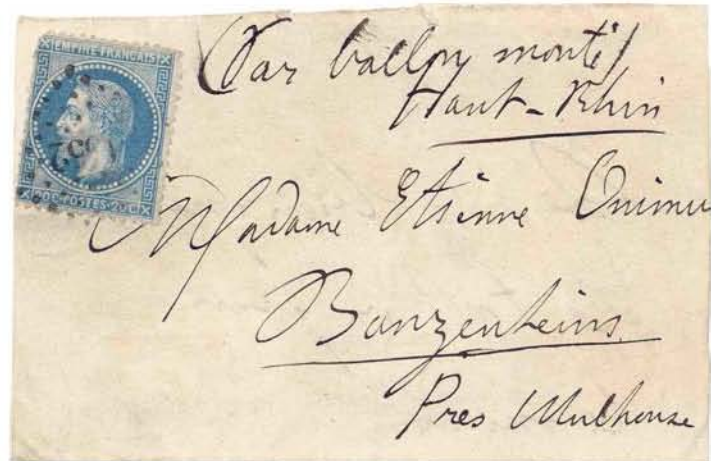 EMPIRE FRANÇAIS
20C POSTES 20C
(Par ballon monté)
Haut-Rhin
Madame Etienne Onimus
Banzenheins
Pres Mulhouse